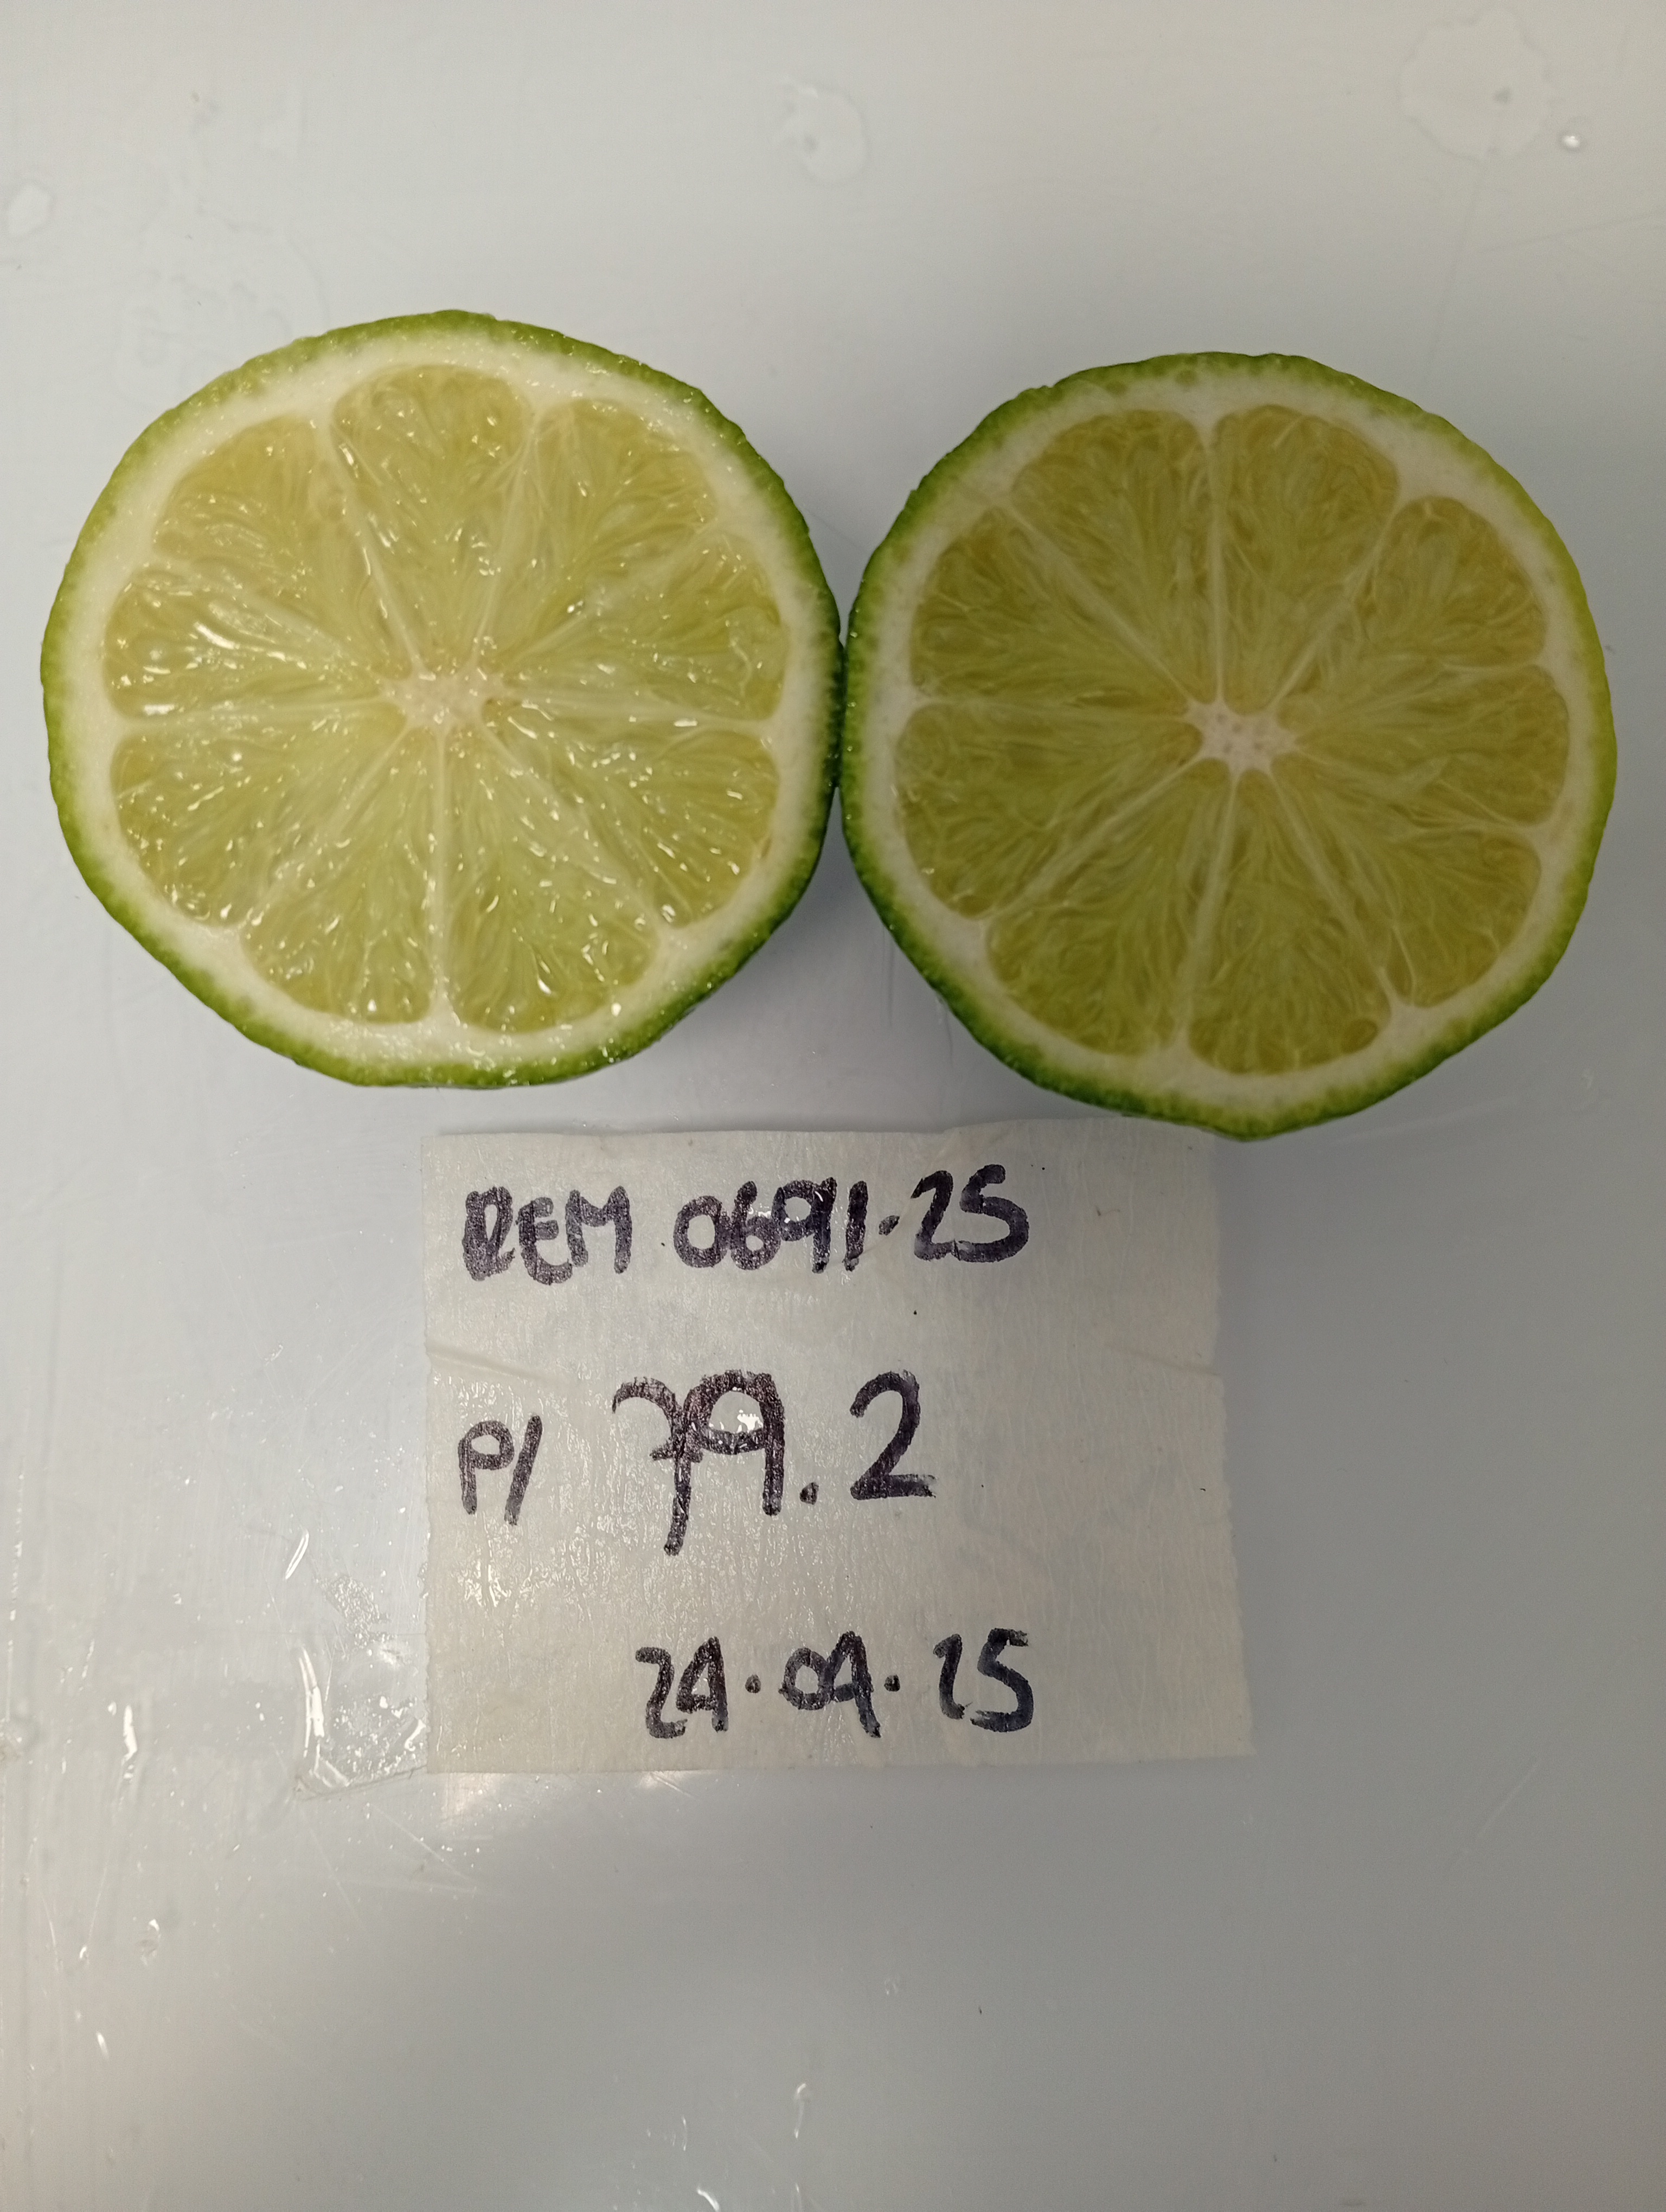 REM 0691.25
P/ 79.2
24.04.25